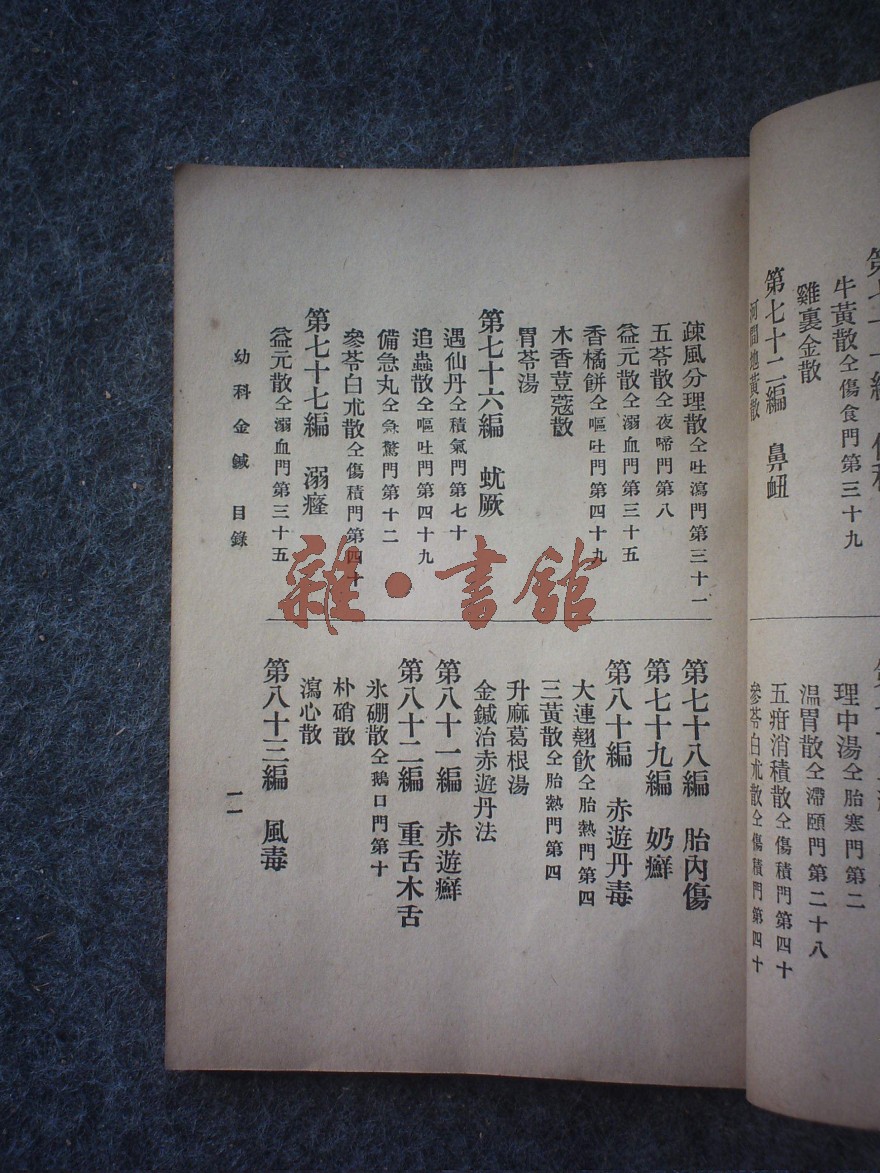 牛黃散仝傷食門第三十九
雞裏金散
第七十二編 鼻衄
河間地黃散
理中湯仝胎寒門第二
溫胃散仝滯頤門第二十八
五疳消積散仝傷積門第四十
參苓白朮散仝傷積門第四十
疎風分理散仝吐瀉門第三十一
五苓散仝夜啼門第八
益元散仝溺血門第三十五
香橘餅仝嘔吐門第四十九
木香荳蔻散
胃苓湯
第七十六編 蚘厥
遇仙丹仝積氣門第七十
追蟲散仝嘔吐門第四十九
備急丸仝急驚門第十二
參苓白朮散仝傷積門第四十
第七十七編 溺癃
益元散仝溺血門第三十五
第七十八編 胎內傷
第七十九編 奶癬
第八十編 赤遊丹毒
大連翹飲仝胎熱門第四
三黃散仝胎熱門第四
升麻葛根湯
金鍼治赤遊丹法
第八十一編 赤遊癬
第八十二編 重舌木舌
氷硼散仝鵝口門第十
朴硝散
瀉心散
第八十三編 風毒
幼科金鍼 目錄
一一
雜·書館